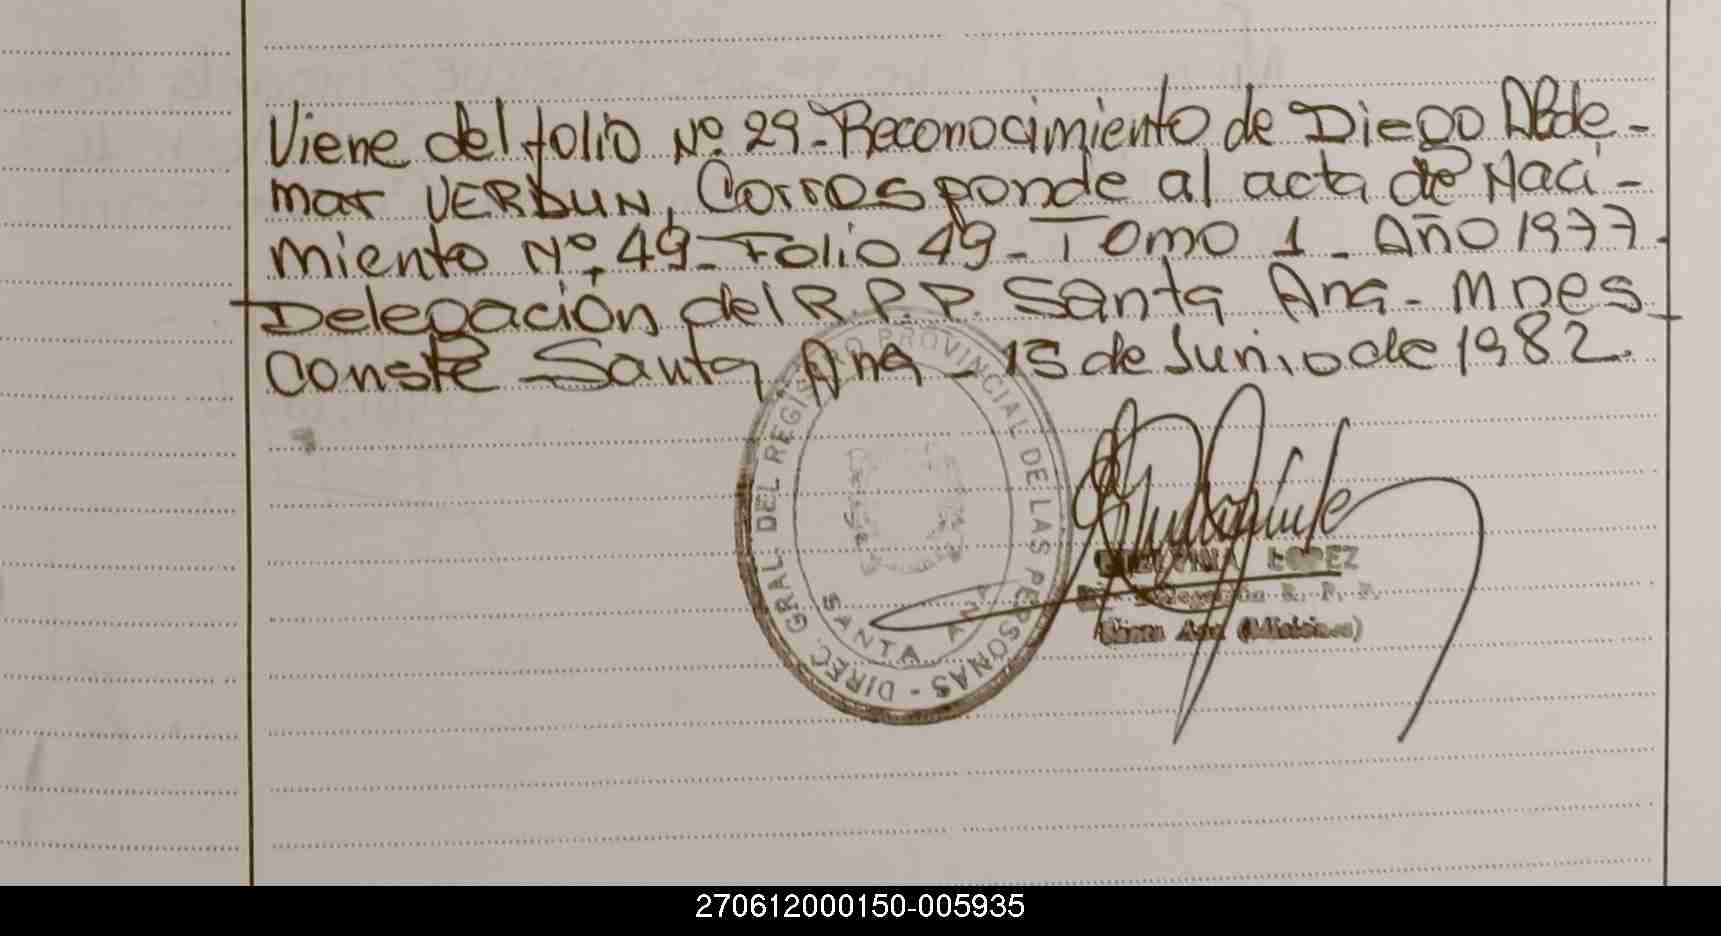 Viene del folio Nº 29-Reconocimiento de Diego Abde-
mar VERDUN, Corrosponde al acta de Naci-
miento Nº 49-Folio 49-Tomo 1-Año 1977.
Delegación del R.P.P. Santa Ana-Mnes
conste Santa Ana-15 de Junio de 1982.
DIREC. GRAL. DEL REGISTRO PROVINCIAL DE LAS PERSONAS -
SANTA ANA
LOPEZ
Delegación R. P. P.
Santa Ana (Misiones)
270612000150-005935